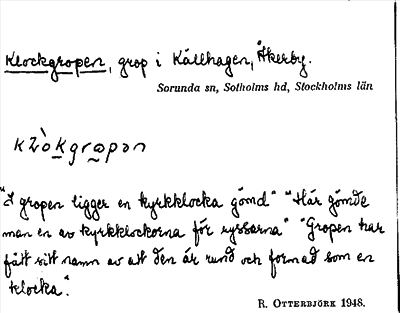 Klockgropen, grop i Källhagen, Åkerby.
Sorunda sn, Sotholms hd, Stockholms län
kḷòkgrọpən
"I gropen ligger en kyrkklocka gömd" "Här gömde
man en av kyrkklockorna för ryssarna" "Gropen har
fått sitt namn av att den är rund och formad som en
klocka".
R. Otterbjörk 1948.